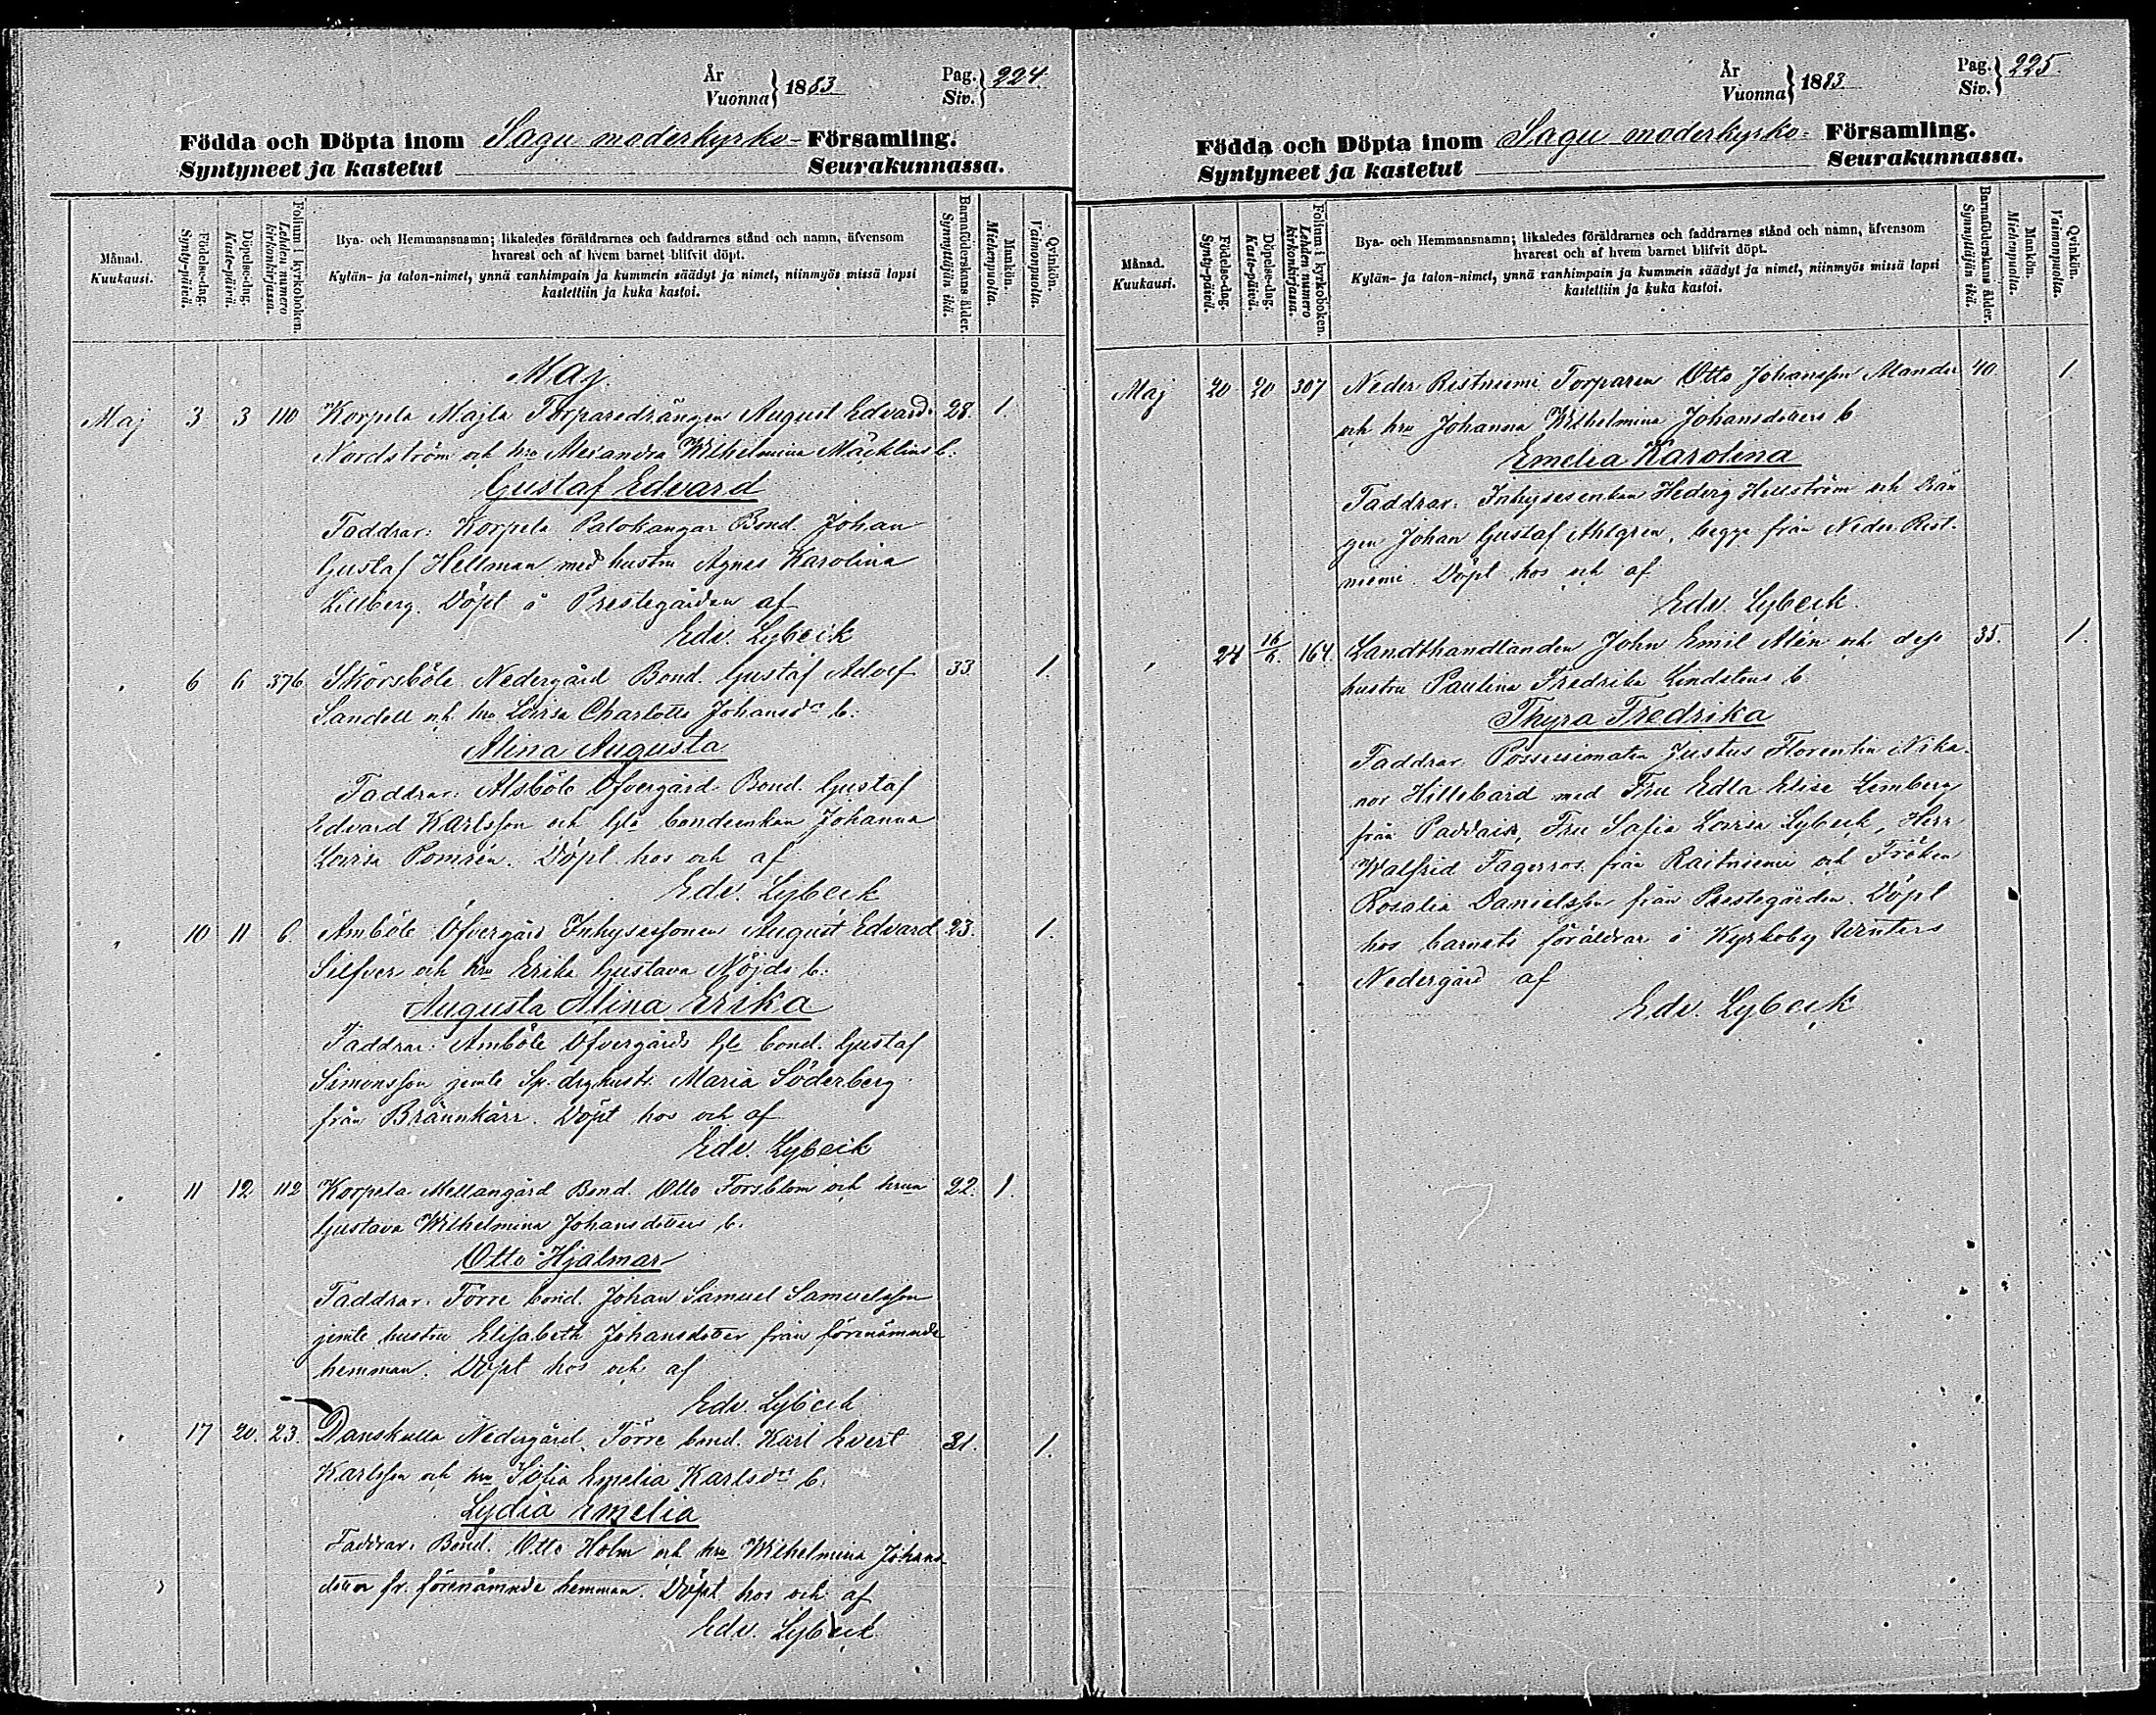 År
Vuonna } 1883
Pag.
Siv. } 224.
Födda och Döpta inom Sagu moderkyrko- Församling.
Syntyneet ja kastetut Seurakunnassa.
Månad.
Kuukausi.
Födelse-dag.
Synty-päivä.
Döpelse-dag.
Kaste-päivä.
Folium i kyrkoboken.
Lehden numero kirkonkirjassa.
Bya- och Hemmansnamn; likaledes föräldrarnes och faddrarnes stånd och namn, äfvensom
hvarest och af hvem barnet blifvit döpt.
Kylän- ja talon-nimet, ynnä vanhimpain ja kummein säädyt ja nimet, niinmyös missä lapsi
kastettiin ja kuka kastoi.
Barnaföderskans ålder.
Synnyttäjän ikä.
Mankön.
Miehenpuolta.
Qvinkön.
Vaimonpuolta.
Maj.
Maj 3 3 110 Korpela Majla Torparedrängen August Edvard 28. 1.
Nordström och hru Alexandra Wilhelmina Mäcklins b.
Gustaf Edvard
Faddrar: Korpela Palokangar Bond. Johan
Gustaf Hellman med hustru Agnes Karolina
Lillberg. Döpt å Prestegården af
Edv. Lybeck
6 6 376 Skörsböle Nedergård Bond. Gustaf Adolf 33. 1.
Sandell och hru Lovisa Charlotta Johansdr b.
Alina Augusta
Faddrar: Alsböle Öfvergård Bond. Gustaf
Edvard Karlsson och gla bondeenkan Johanna
Lovisa Pomrén. Döpt hos och af
Edv. Lybeck
10 11 6 Amböle Öfvergård Inhysessonen August Edvard 23. 1.
Silfver och hru Erika Gustava Nöjds b.
Augusta Alina Erika
Faddrar: Amböle Öfvergårds gla bond. Gustaf
Simonsson jemte Sp. drg.hustr. Maria Söderberg
från Brännkärr. Döpt hos och af
Edv. Lybeck
11 12 112 Korpela Mellangård Bond. Otto Forsblom och hrun 22. 1.
Gustava Wilhelmina Johansdotters b.
Otto Hjalmar
Faddrar: Förre bond. Johan Samuel Samuelsson
jemte hustru Elisabeth Johansdotter från förenämnde
hemman. Döpt hos och af
Edv. Lybeck
17 20. 23. Danskulla Nedergård, Förre bond. Karl Evert 31. 1.
Karlsson och hru Sofia Emelia Karlsdrs b.
Lydia Emelia
Faddrar: Bond. Otto Holm och hru Wilhelmina Johans-
dotter fr. förenämnde hemman. Döpt hos och af
Edv. Lybeck
År
Vuonna } 1883.
Pag.
Siv. } 225.
Födda och Döpta inom Sagu moderkyrko- Församling.
Syntyneet ja kastetut Seurakunnassa.
Månad.
Kuukausi.
Födelse-dag.
Synty-päivä.
Döpelse-dag.
Kaste-päivä.
Folium i kyrkoboken.
Lehden numero kirkonkirjassa.
Bya- och Hemmansnamn; likaledes föräldrarnes och faddrarnes stånd och namn, äfvensom
hvarest och af hvem barnet blifvit döpt.
Kylän- ja talon-nimet, ynnä vanhimpain ja kummein säädyt ja nimet, niinmyös missä lapsi
kastettiin ja kuka kastoi.
Barnaföderskans ålder.
Synnyttäjän ikä.
Mankön.
Miehenpuolta.
Qvinkön.
Vaimonpuolta.
Maj 20 20 307 Neder Ristniemi Torparen Otto Johansson Mander 40 1.
och hru Johanna Wilhelmina Johansdotters b
Emelia Karolina
Faddrar: Inhysesenkan Hedvig Hellström och Drän
gen Johan Gustaf Ahlgren, begge från Neder Rist-
niemi. Döpt hos och af
Edv. Lybeck.
24 16/6. 164. Landthandlanden John Emil Alén och dess 35. 1.
hustru Paulina Fredrika Lindstens b.
Thyra Fredrika
Faddrar: Possessionaten Justus Florentin Nika-
nor Hillebard med Fru Edla Elise Limberg
från Paddais, Fru Sofia Lovisa Lybeck, Herr
Walfrid Fagerros från Raitniemi och Fröken
Rosalia Danielsson från Prestegården. Döpt
hos barnets föräldrar å Kyrkoby Winters
Nedergård af
Edv. Lybeck